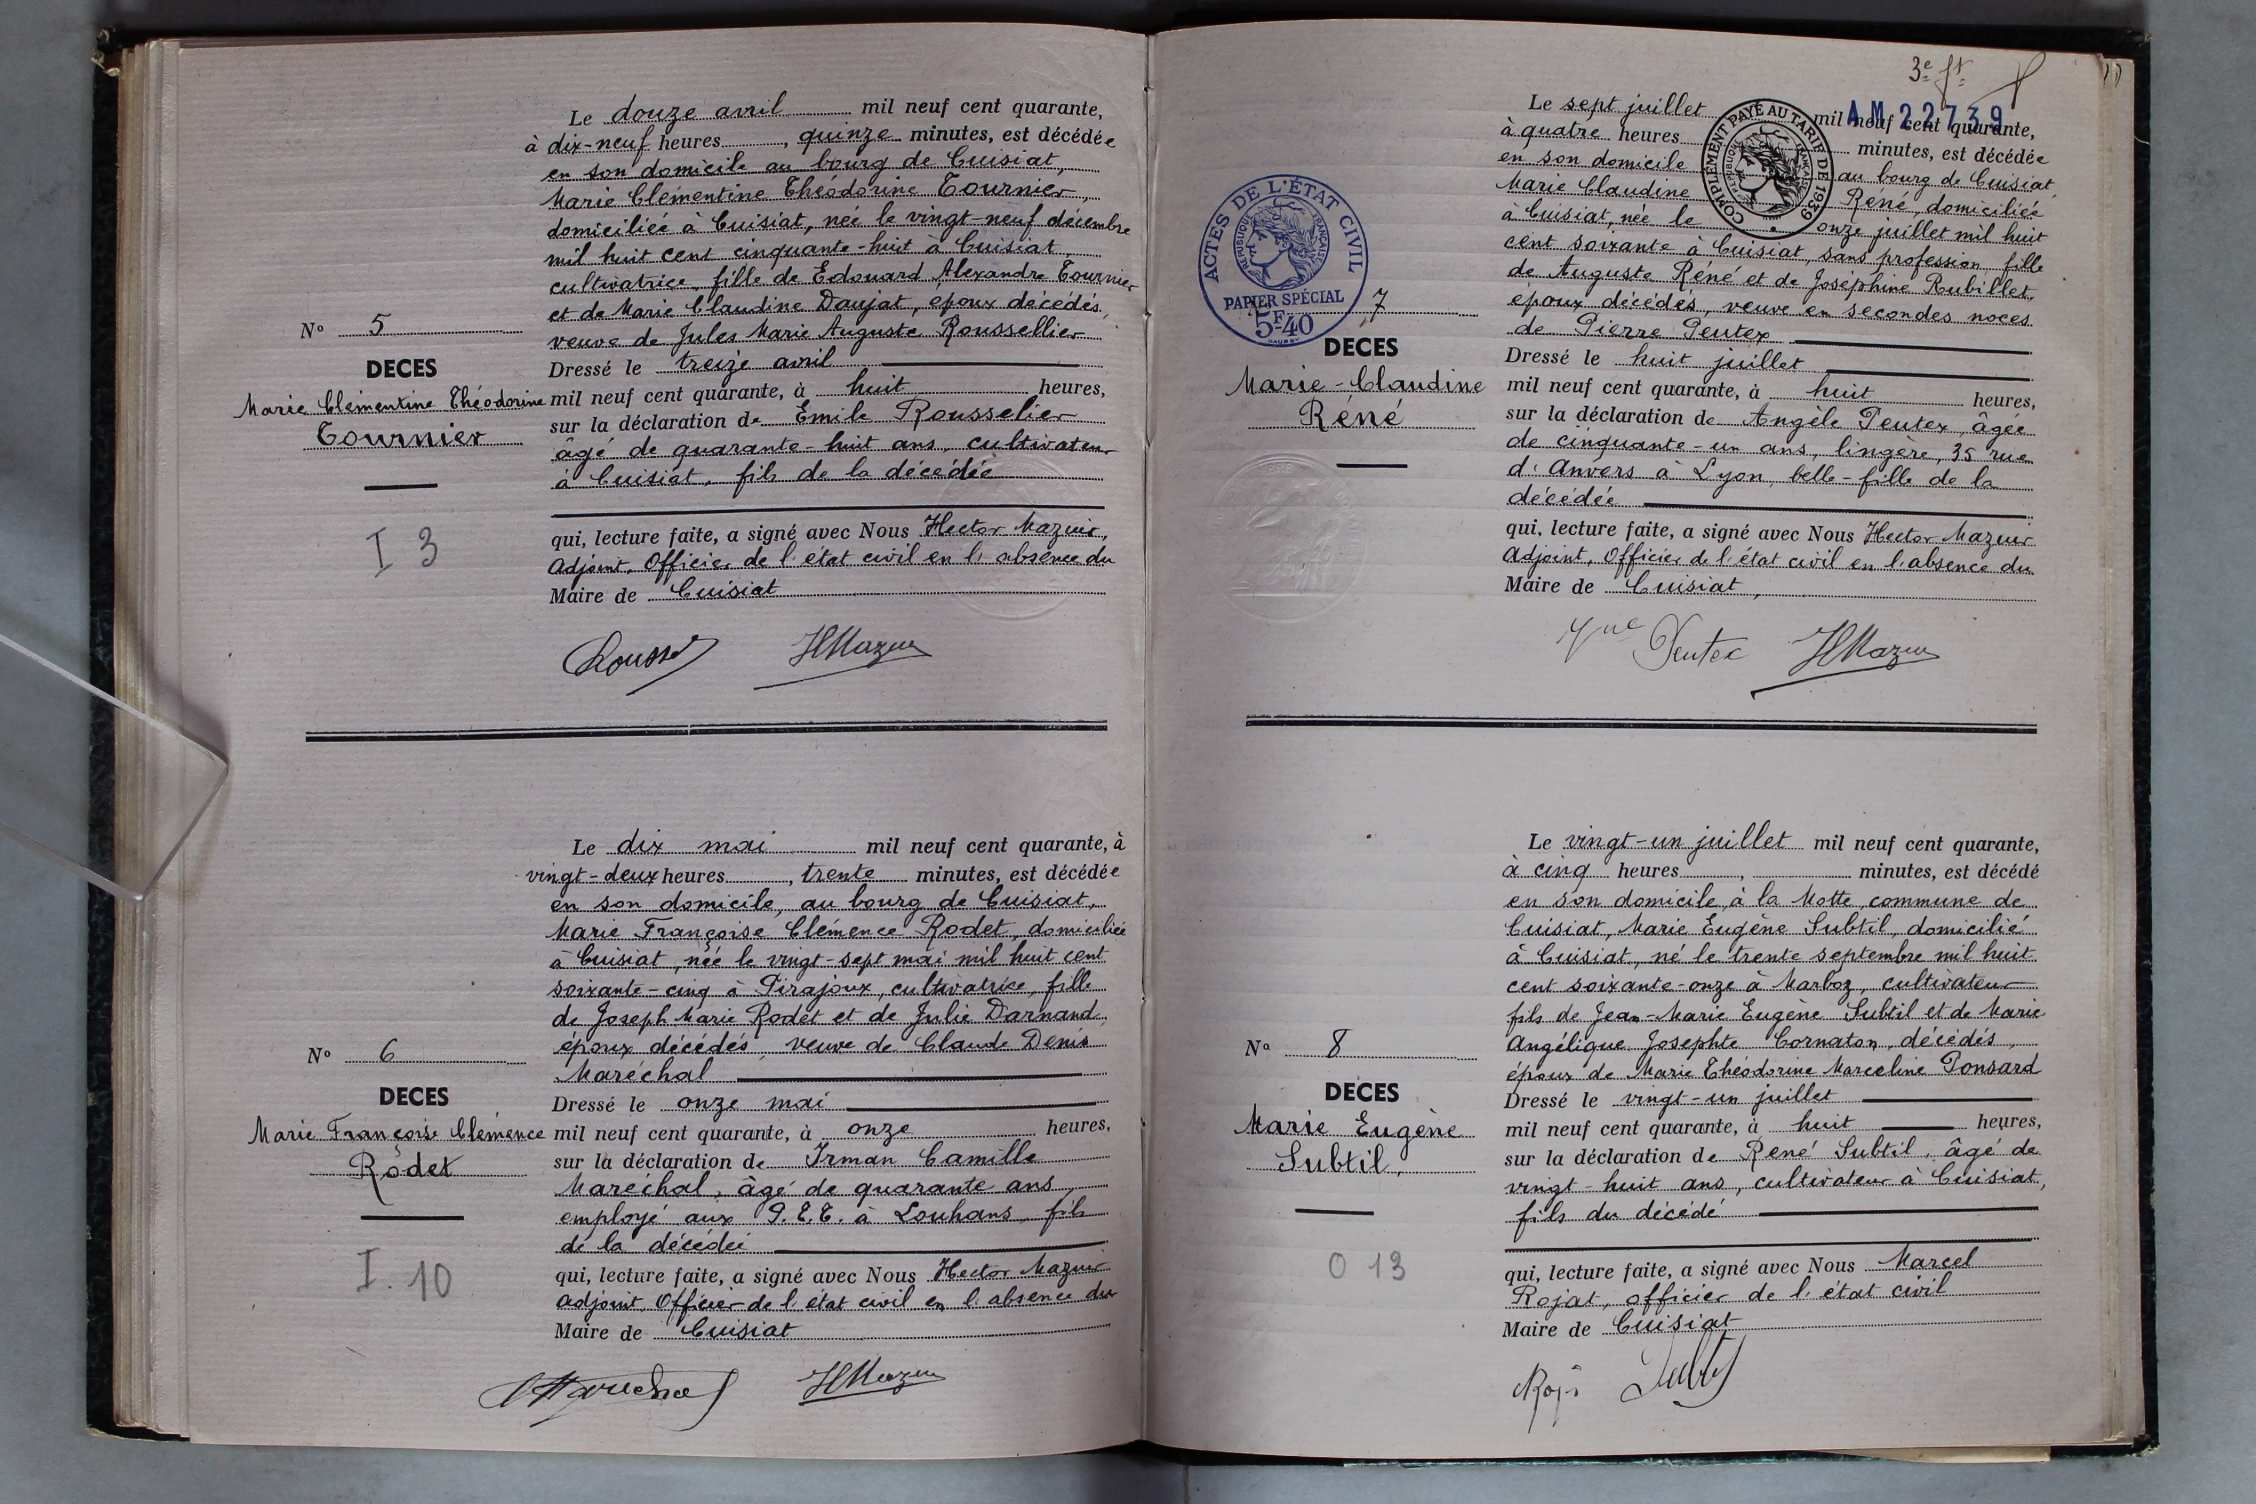 Le douze avril mil neuf cent quarante,
à dix-neuf heures, quinze minutes, est décédée
en son domicile au bourg de Cuisiat,
Marie Clémentine Théodorine Tournier,
domiciliée à Cuisiat, née le vingt-neuf décembre
mil huit cent cinquante-huit à Cuisiat,
cultivatrice, fille de Edouard Alexandre Tournier
et de Marie Claudine Daujat, époux décédés,
veuve de Jules Marie Auguste Roussellier
N° 5
DECES
Marie Clémentine Théodorine
Tournier
I 3
Dressé le treize avril
mil neuf cent quarante, à huit heures,
sur la déclaration de Emile Rousselier
âgé de quarante-huit ans, cultivateur
à Cuisiat, fils de la décédée
qui, lecture faite, a signé avec Nous Hector Mazuir,
Adjoint, Officier de l'état civil en l'absence du
Maire de Cuisiat
HMazuir
Le dix mai mil neuf cent quarante, à
vingt-deux heures, trente minutes, est décédée
en son domicile, au bourg de Cuisiat,
Marie Françoise Clémence Rodet, domiciliée
à Cuisiat, née le vingt-sept mai mil huit cent
soixante-cinq à Pirajoux, cultivatrice, fille
de Joseph Marie Rodet et de Julie Darnand,
époux décédés, veuve de Claude Denis
Maréchal
N° 6
DECES
Marie Françoise Clémence
Rodet
I. 10
Dressé le onze mai
mil neuf cent quarante, à onze heures,
sur la déclaration de Irman Camille
Maréchal, âgé de quarante ans,
employé aux P.T.T. à Louhans, fils
de la décédée
qui, lecture faite, a signé avec Nous Hector Mazuir
Adjoint, Officier de l'état civil en l'absence du
Maire de Cuisiat
Marechal HMazuir
3e ft
AM 22739
COMPLÉMENT PAYÉ AU TARIF DE 1939
RÉPUBLIQUE FRANÇAISE
ACTES DE L'ÉTAT CIVIL
RÉPUBLIQUE FRANÇAISE
PAPIER SPÉCIAL
5F40
Le sept juillet mil neuf cent quarante,
à quatre heures minutes, est décédée
en son domicile au bourg de Cuisiat
Marie Claudine Réné, domiciliée
à Cuisiat, née le onze juillet mil huit
cent soixante à Cuisiat, sans profession, fille
de Auguste Réné et de Joséphine Rubillet,
époux décédés, veuve en secondes noces
de Pierre Peutex
7
DECES
Marie-Claudine
Réné
Dressé le huit juillet
mil neuf cent quarante, à huit heures,
sur la déclaration de Angèle Peutex, âgée
de cinquante-un ans, lingère, 35 rue
d'Anvers à Lyon, belle-fille de la
décédée
qui, lecture faite, a signé avec Nous Hector Mazuir
Adjoint, Officier de l'état civil en l'absence du
Maire de Cuisiat,
Peutex HMazuir
Le vingt-un juillet mil neuf cent quarante,
à cinq heures, minutes, est décédé
en son domicile, à la Motte, commune de
Cuisiat, Marie Eugène Subtil, domicilié
à Cuisiat, né le trente septembre mil huit
cent soixante-onze à Marboz, cultivateur
fils de Jean-Marie Eugène Subtil et de Marie
Angélique Josephte Cornaton, décédés,
époux de Marie Théodorine Marceline Ponsard
N° 8
DECES
Marie Eugène
Subtil,
0 13
Dressé le vingt-un juillet
mil neuf cent quarante, à huit heures,
sur la déclaration de René Subtil, âgé de
vingt-huit ans, cultivateur à Cuisiat,
fils du décédé
qui, lecture faite, a signé avec Nous Marcel
Rojat, officier de l'état civil
Maire de Cuisiat
Subtil